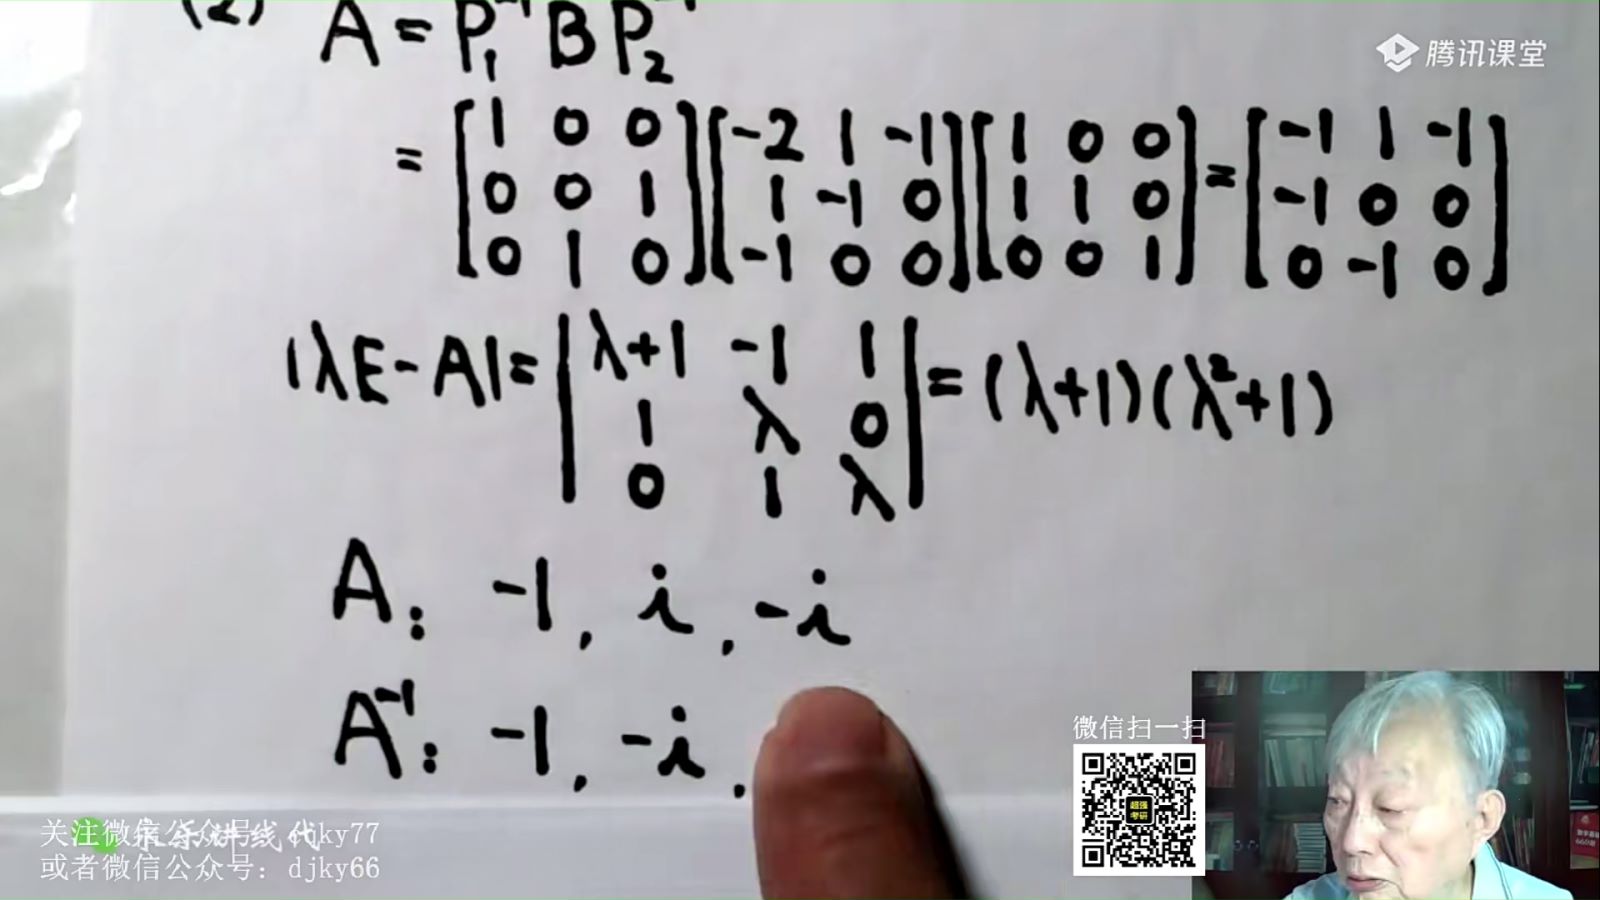 (2) A = P₁⁻¹ B P₂⁻¹
腾讯课堂
= [1 0 0; 0 0 1; 0 1 0] [-2 1 -1; 1 -1 0; -1 0 0] [1 0 0; 1 1 0; 0 0 1] = [-1 1 -1; -1 0 0; 0 -1 0]
|λE - A| = |λ+1 -1 1; 1 λ 0; 0 1 λ| = (λ+1)(λ²+1)
A: -1, i, -i
A⁻¹: -1, -i,
微信扫一扫
超强
考研
关注微信公众号: djky77
或者微信公众号: djky66